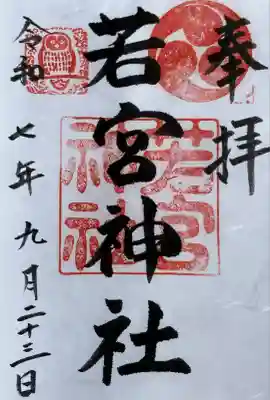 奉拝
若宮神社
若宮神社
令和七年九月二十三日